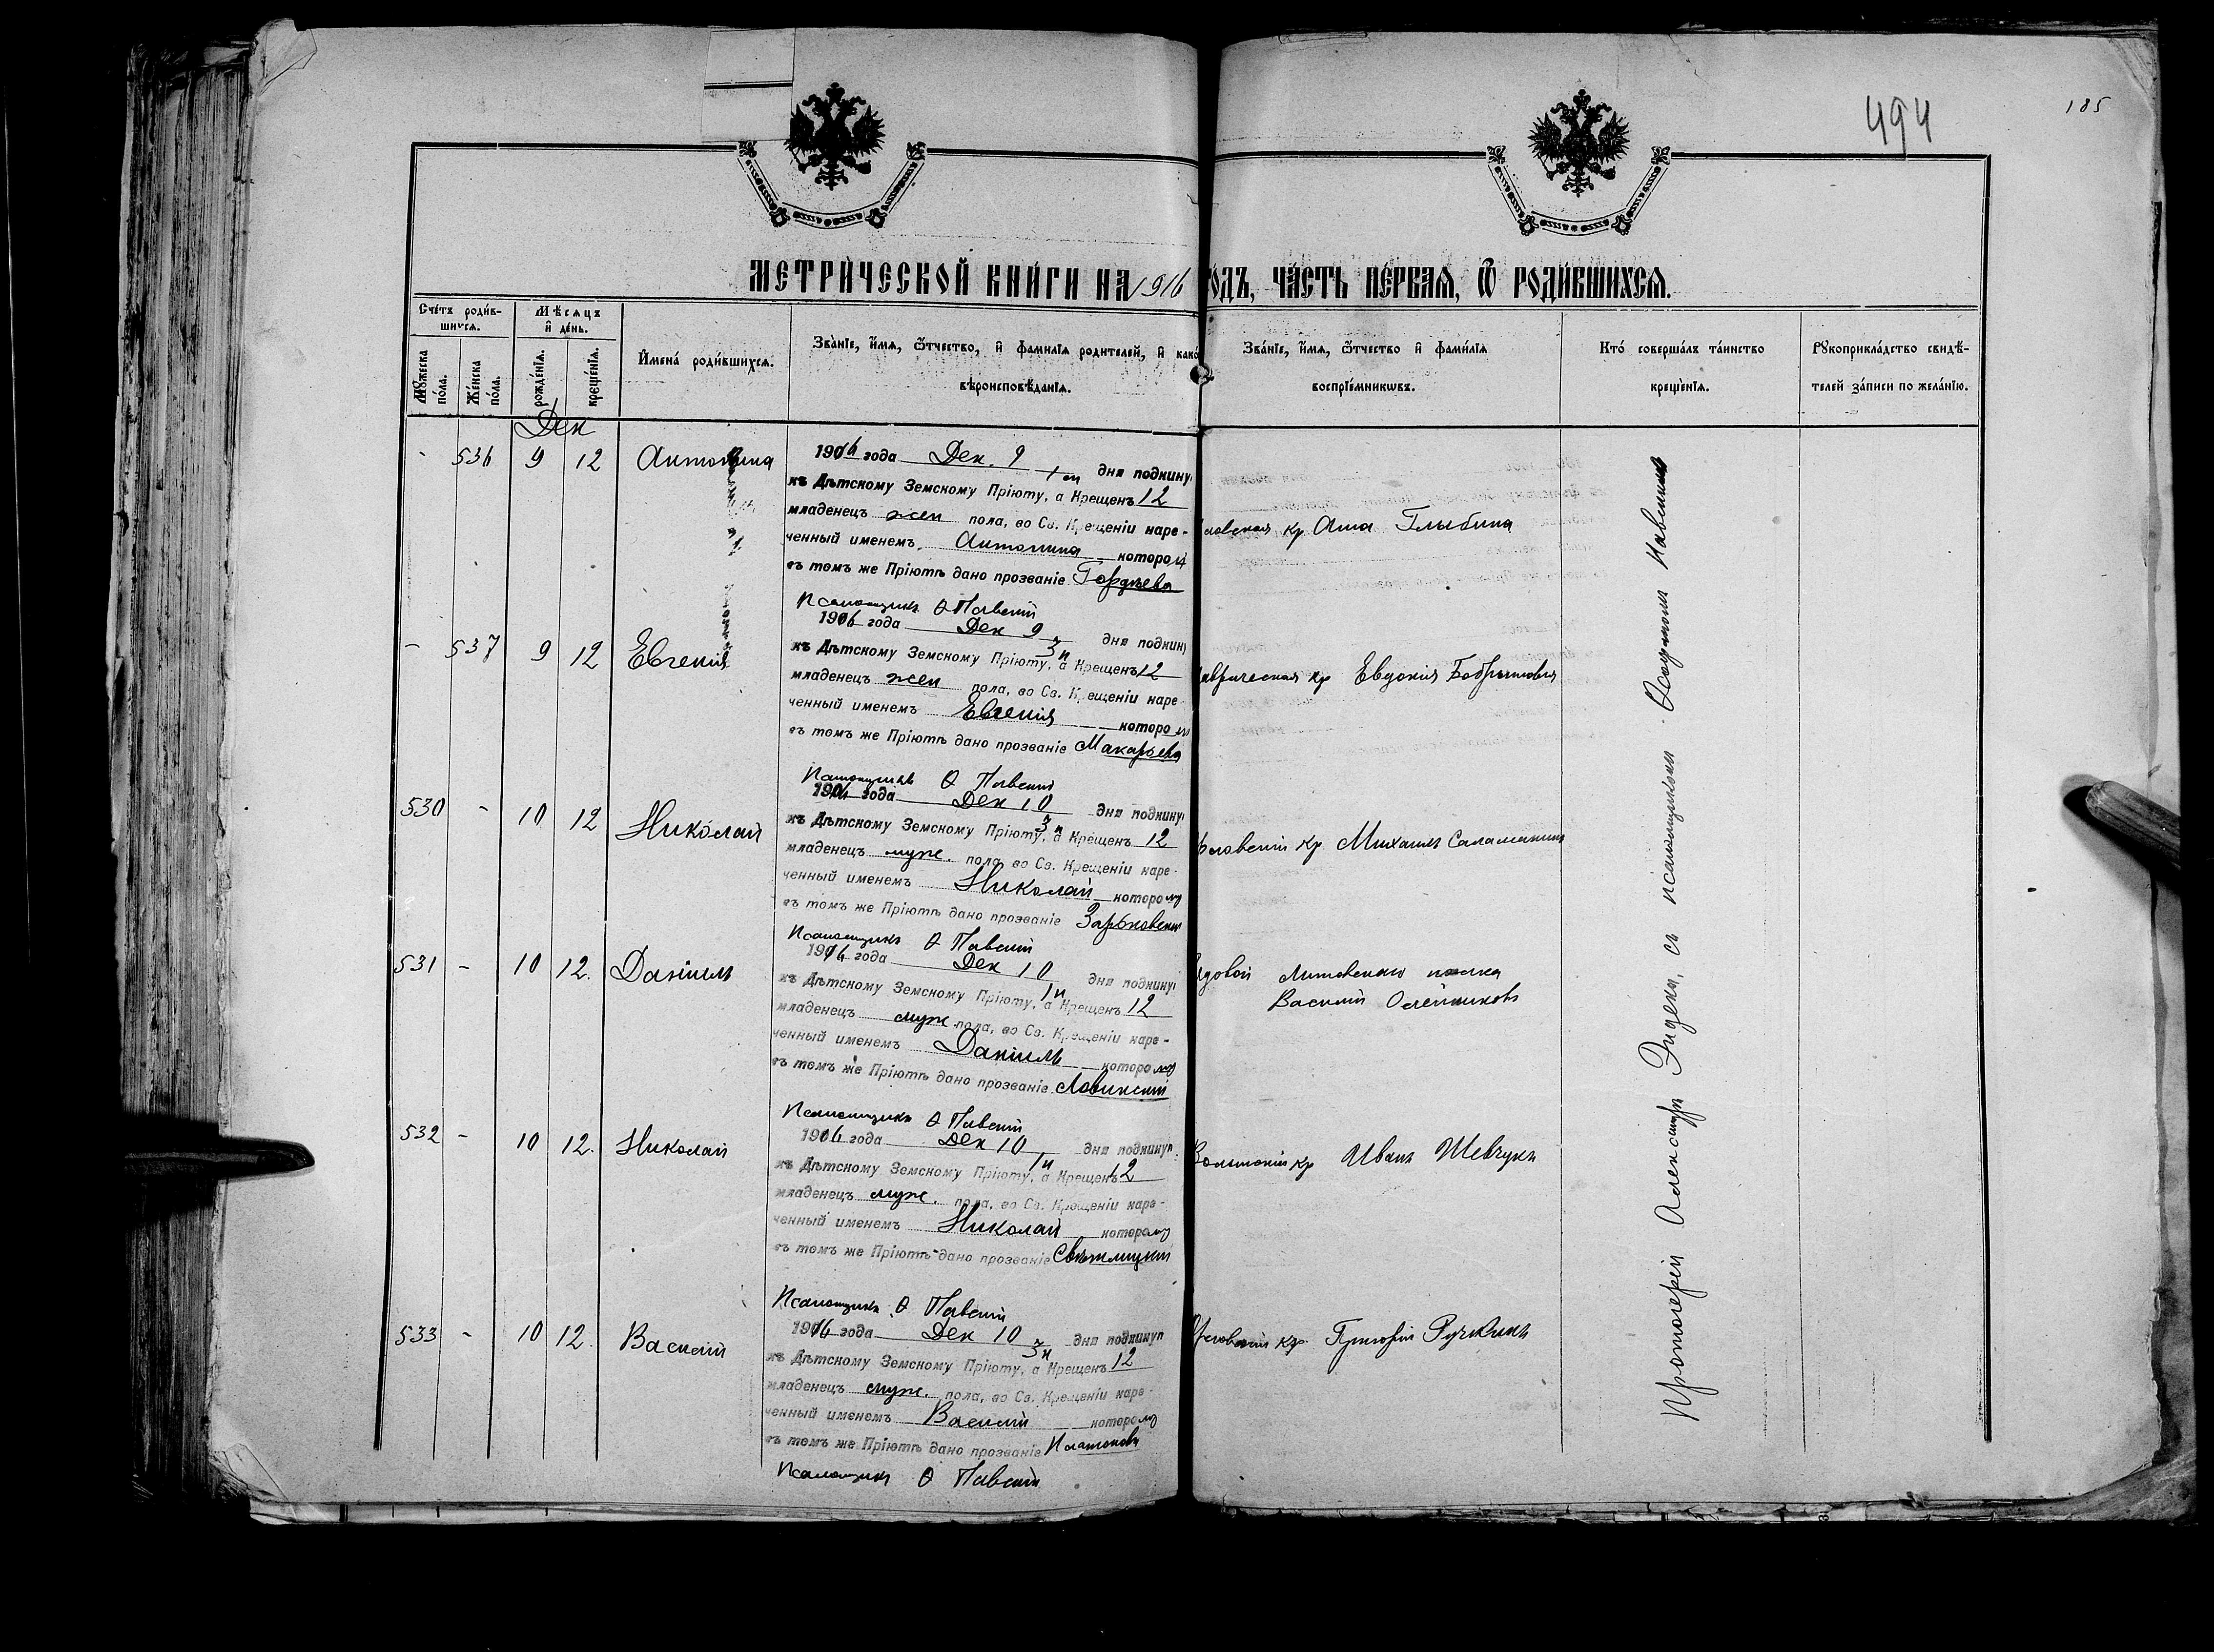 494
185
МЕТРИЧЕСКОЙ КНИГИ НА 1916 ГОДЪ, ЧАСТЬ ПЕРВАЯ, Ѿ РОДИВШИХСЯ.
Счетъ родив-
шихся.
Мѣсяцъ
и день.
Мужеска
пола.
Женска
пола.
рожденія.
крещенія.
Имена родившихся.
Званіе, имя, ѿчество, и фамилія родителей, и како
вѣроисповѣданія.
Званіе, имя, ѿчество и фамилія
воспріемниковъ.
Кто совершалъ таинство
крещенія.
Рукоприкладство свидѣ-
телей записи по желанію.
Дек
- 536 9 12 Антонина
1916 года Дек. 9 дня подкину
къ Дѣтскому Земскому Пріюту, а Крещенъ 12
младенецъ жен пола, во Св. Крещеніи наре-
ченный именемъ Антонина которой
въ томъ же Пріютѣ дано прозваніе Гордѣева
Псаломщикъ Ѳ Павскій
кр Анна Глыбина
- 537 9 12 Евгенія
1916 года Дек 9 дня подкину
къ Дѣтскому Земскому Пріюту, а Крещенъ 12
младенецъ жен пола, во Св. Крещеніи наре-
ченный именемъ Евгенія которой
въ томъ же Пріютѣ дано прозваніе Макарьева
Псаломщикъ Ѳ Павскій
аврическая кр Евдокія
530 - 10 12 Николай
1916 года Дек 10 дня подкину
къ Дѣтскому Земскому Пріюту, а Крещенъ 12
младенецъ муж. пола, во Св. Крещеніи наре-
ченный именемъ Николай которому
въ томъ же Пріютѣ дано прозваніе
Псаломщикъ Ѳ Павскій
кр Михаилъ Саламакинъ
531 - 10 12. Даніилъ
1916 года Дек 10 дня подкину
къ Дѣтскому Земскому Пріюту, а Крещенъ 12
младенецъ муж пола, во Св. Крещеніи наре-
ченный именемъ Даніилъ которому
въ томъ же Пріютѣ дано прозваніе Ловинскій
Псаломщикъ Ѳ Павскій
ядовой Литовскаго полка
Василій Олейниковъ
532 - 10 12. Николай
1916 года Дек 10 дня подкину
къ Дѣтскому Земскому Пріюту, а Крещенъ 12
младенецъ муж. пола, во Св. Крещеніи наре-
ченный именемъ Николай которому
въ томъ же Пріютѣ дано прозваніе Свѣтлицкій
Псаломщикъ Ѳ Павскій
Волынскій кр Иванъ Шевчукъ
533 - 10 12. Василій
1916 года Дек 10 дня подкину
къ Дѣтскому Земскому Пріюту, а Крещенъ 12
младенецъ муж. пола, во Св. Крещеніи наре-
ченный именемъ Василій которому
въ томъ же Пріютѣ дано прозваніе Платоновъ
Псаломщикъ Ѳ Павскій
кр Григорій Ручкинъ
Протоіерей Александръ Эндека, съ псаломщикомъ Павскимъ